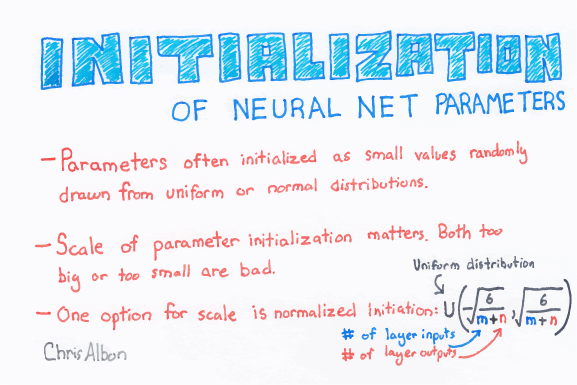 INITIALIZATION
OF NEURAL NET PARAMETERS
- Parameters often initialized as small values randomly
drawn from uniform or normal distributions.
- Scale of parameter initialization matters. Both too
big or too small are bad.
Uniform distribution
- One option for scale is normalized Initiation: U(-√(6/(m+n)), √(6/(m+n)))
# of layer inputs
# of layer outputs
Chris Albon